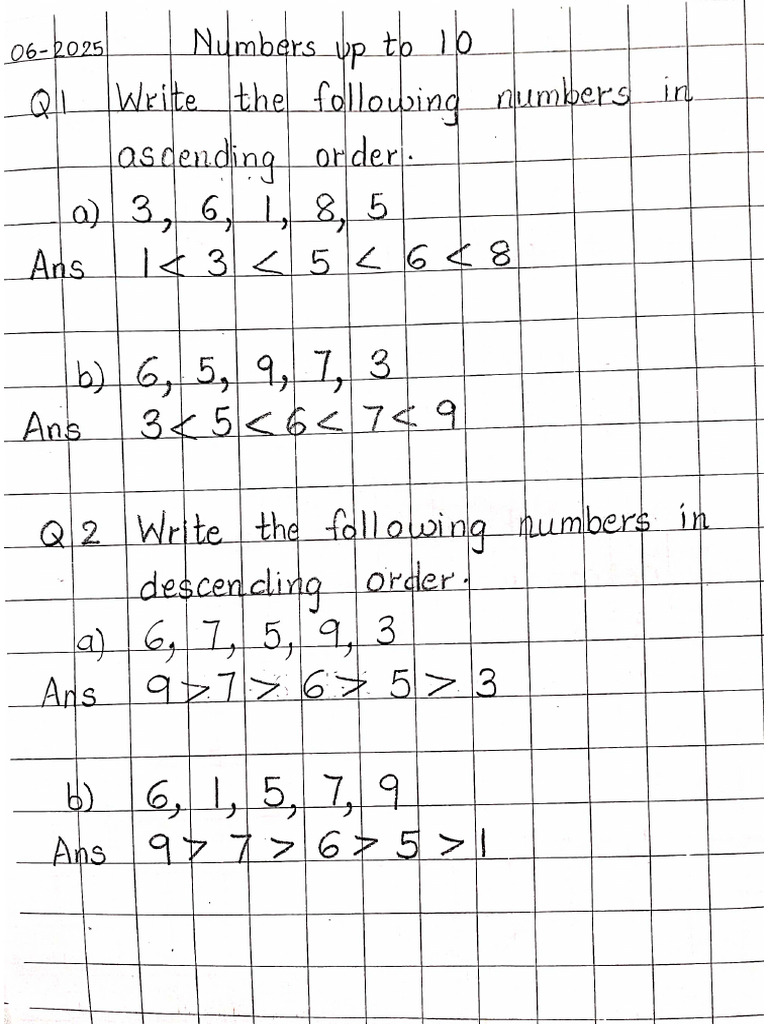 06-2025 Numbers up to 10
Q1 Write the following numbers in
ascending order.
a) 3, 6, 1, 8, 5
Ans 1 < 3 < 5 < 6 < 8
b) 6, 5, 9, 7, 3
Ans 3 < 5 < 6 < 7 < 9
Q2 Write the following numbers in
descending order.
a) 6, 7, 5, 9, 3
Ans 9 > 7 > 6 > 5 > 3
b) 6, 1, 5, 7, 9
Ans 9 > 7 > 6 > 5 > 1